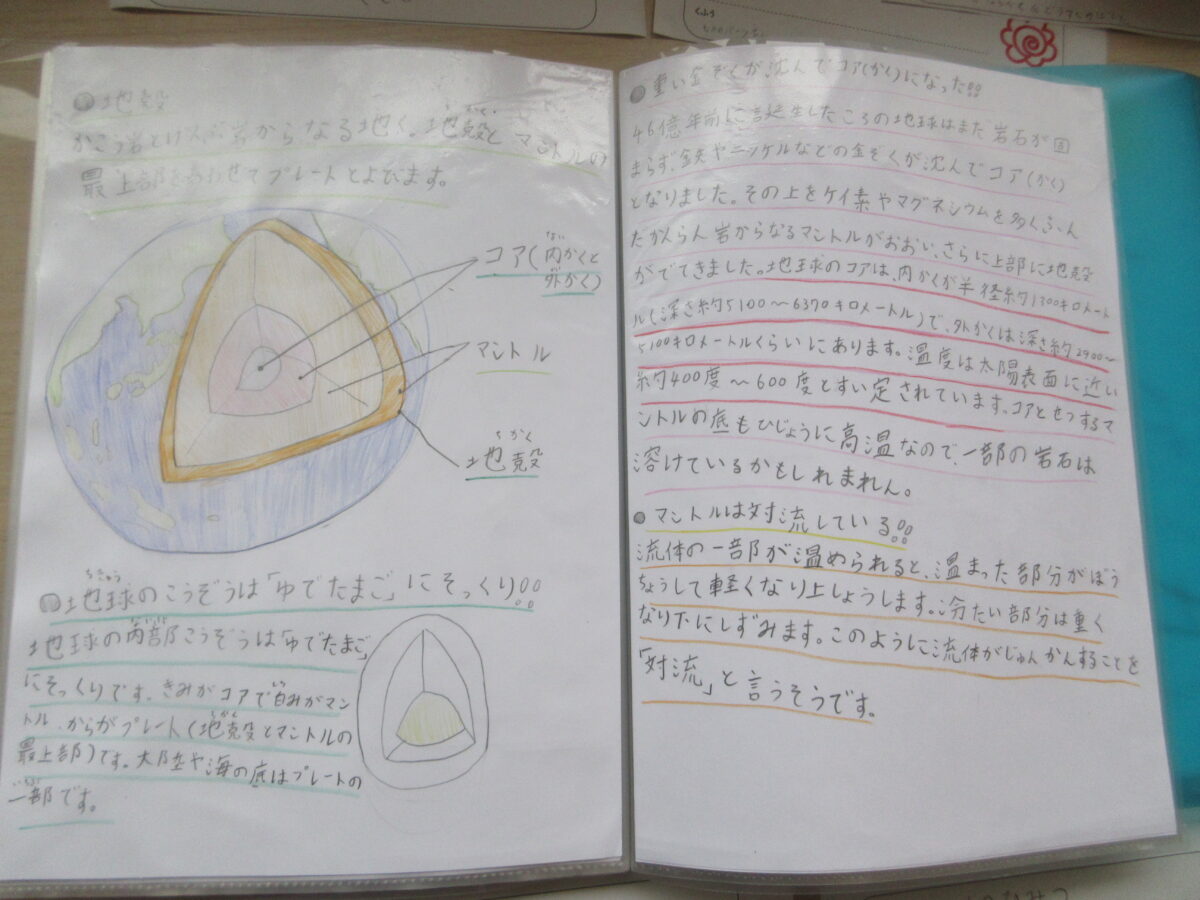 くふう
地殻
かこう岩とげんぶ岩からなる地く。地殻とマントルの
最上部をあわせてプレートとよびます。
コア(内かくと
外かく)
マントル
地殻
地球のこうぞうは「ゆでたまご」にそっくり!!
地球の内部こうぞうは「ゆでたまご」
にそっくりです。きみがコアで白みがマン
トル、からがプレート(地殻とマントルの
最上部)です。大陸や海の底はプレートの
一部です。
重い金ぞくが沈んでコア(かく)になった!!
46億年前に誕生したころの地球はまだ岩石が固
まらず、鉄やニッケルなどの金ぞくが沈んでコア(かく)
となりました。その上をケイ素やマグネシウムを多くふくん
だかんらん岩からなるマントルがおおい、さらに上部に地殻
ができてきました。地球のコアは、内かくが半径約1300キロメート
ル(深さ約5100〜6370キロメートル)で、外かくは深さ約2900〜
5100キロメートルくらいにあります。温度は太陽表面に近い
約400度〜600度とすい定されています。コアとせっするマ
ントルの底もひじょうに高温なので、一部の岩石は
溶けているかもしれません。
マントルは対流している!!
流体の一部が温められると、温まった部分がぼう
ちょうして軽くなり上しょうします。冷たい部分は重く
なり下にしずみます。このように流体がじゅんかんすることを
「対流」と言うそうです。